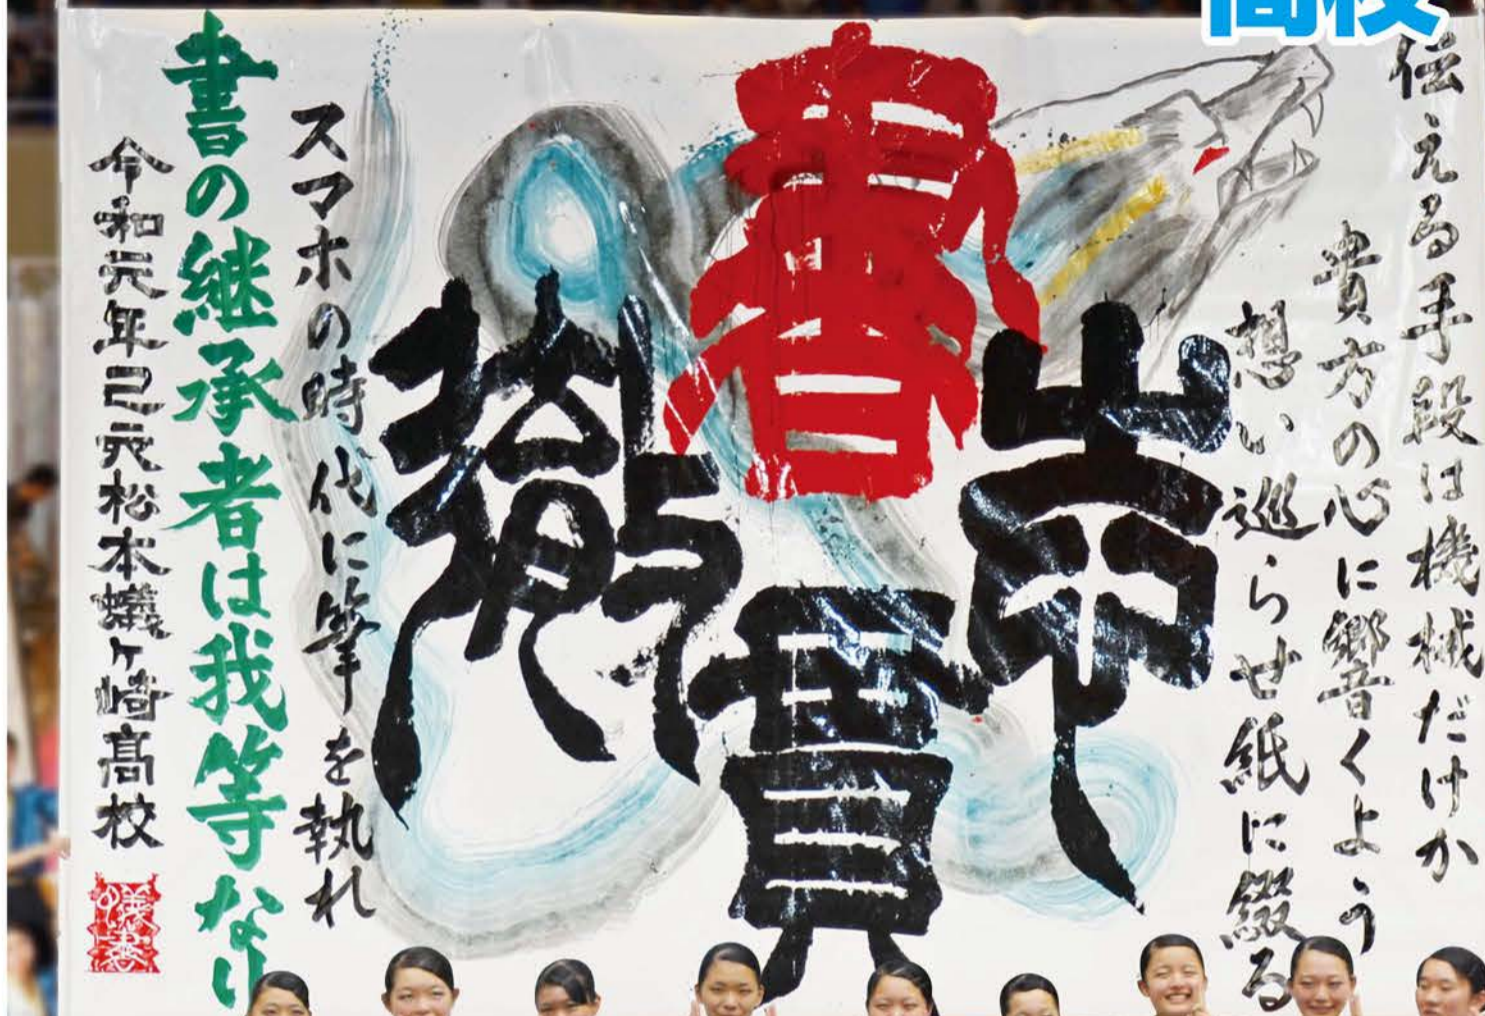 高校
伝える手段は機械だけか
貴方の心に響くよう
想い巡らせ紙に綴る
書
貫
スマホの時代に筆を執れ
書の継承者は我等なり
令和元年己亥松本蟻ヶ崎高校